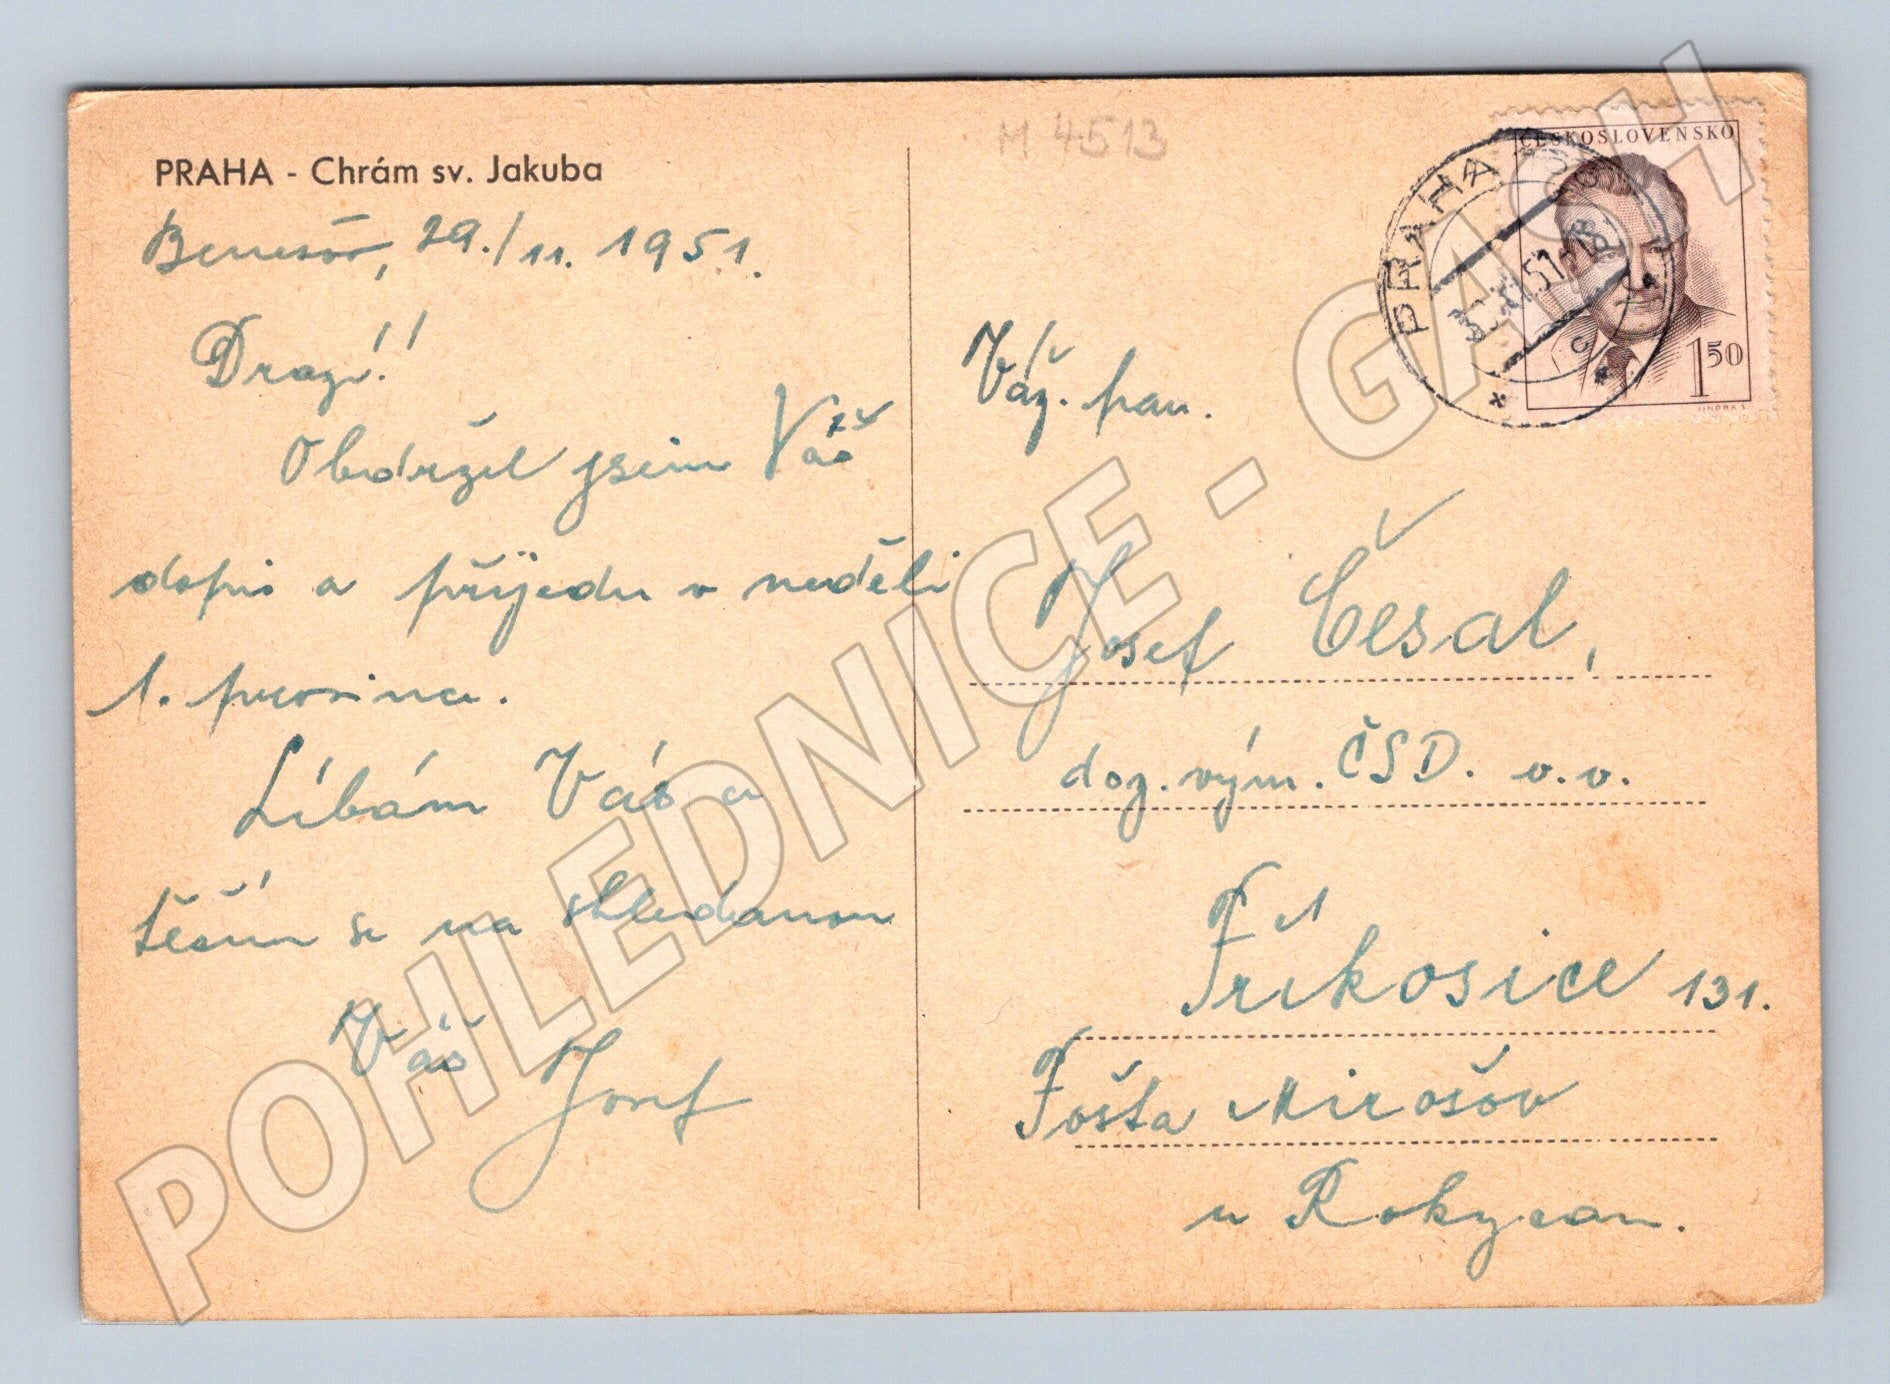 PRAHA - Chrám sv. Jakuba
Benešov, 29./11. 1951.
Drazí!!
Obdržel jsem Váš
dopis a přijedu v neděli
1. prosince.
Líbám Vás a
těším se na shledanou
Váš Josef
M 4513
ČESKOSLOVENSKO
150
JINDRA S.
PRAHA
51-18
Váž. pan.
Josef Česal,
doz. vým. ČSD. v. v.
Příkosice 131.
Pošta Mirošov
u Rokycan.
POHLEDNICE - GASH